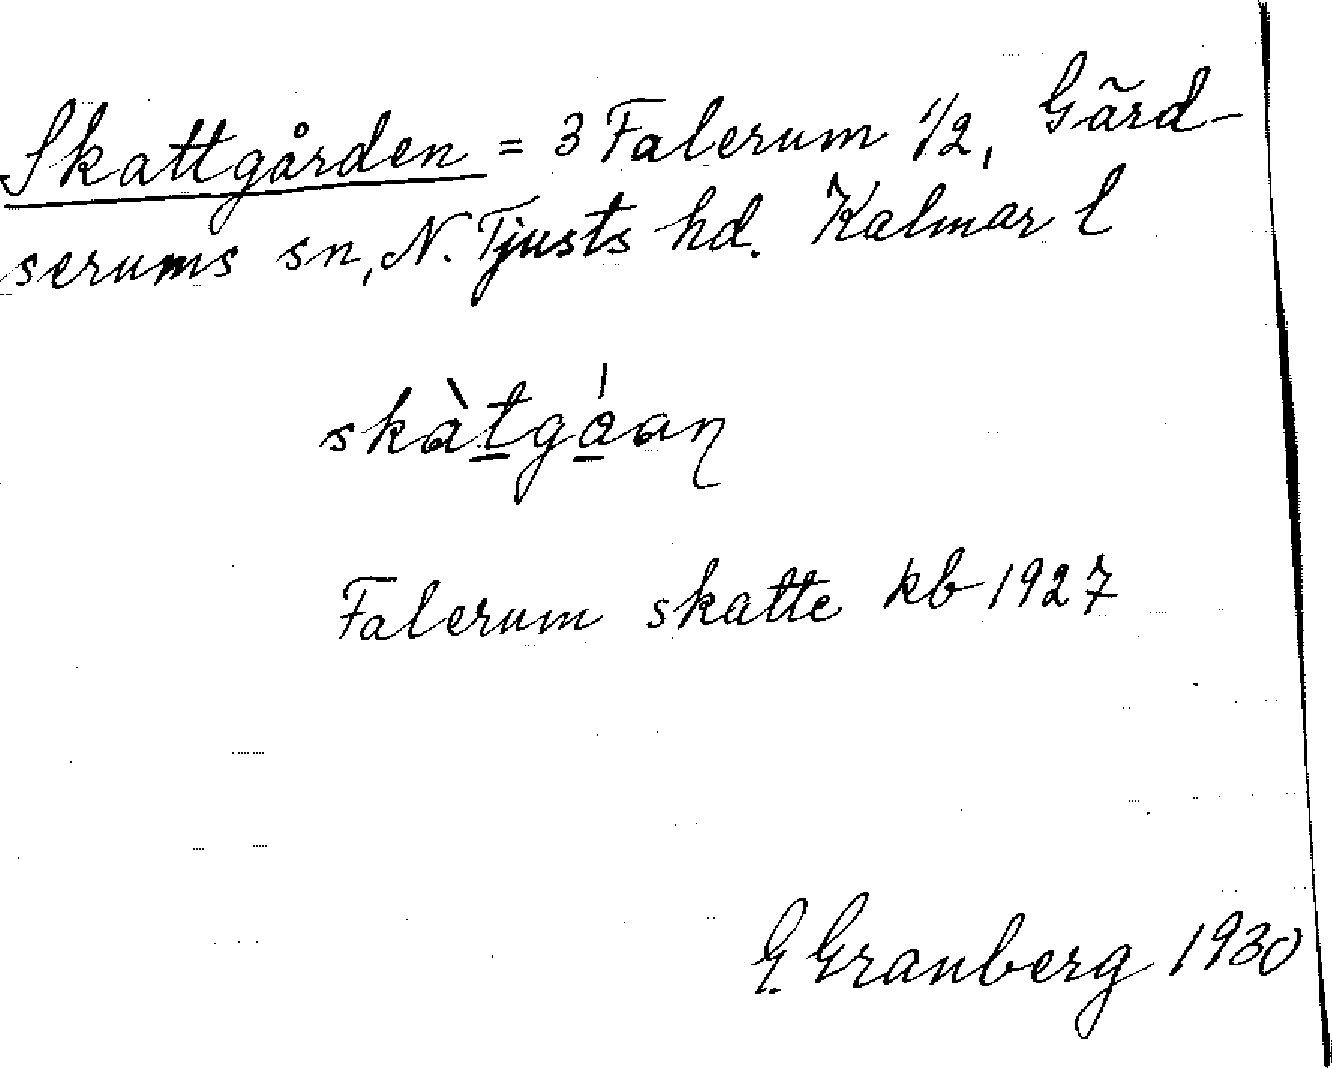 Skattgården = 3 Falerum 1/2, Gärd-
serums sn, N. Tjusts hd. Kalmar l
skàtgáaṇ
Falerum skatte kb 1927
G. Granberg 1930